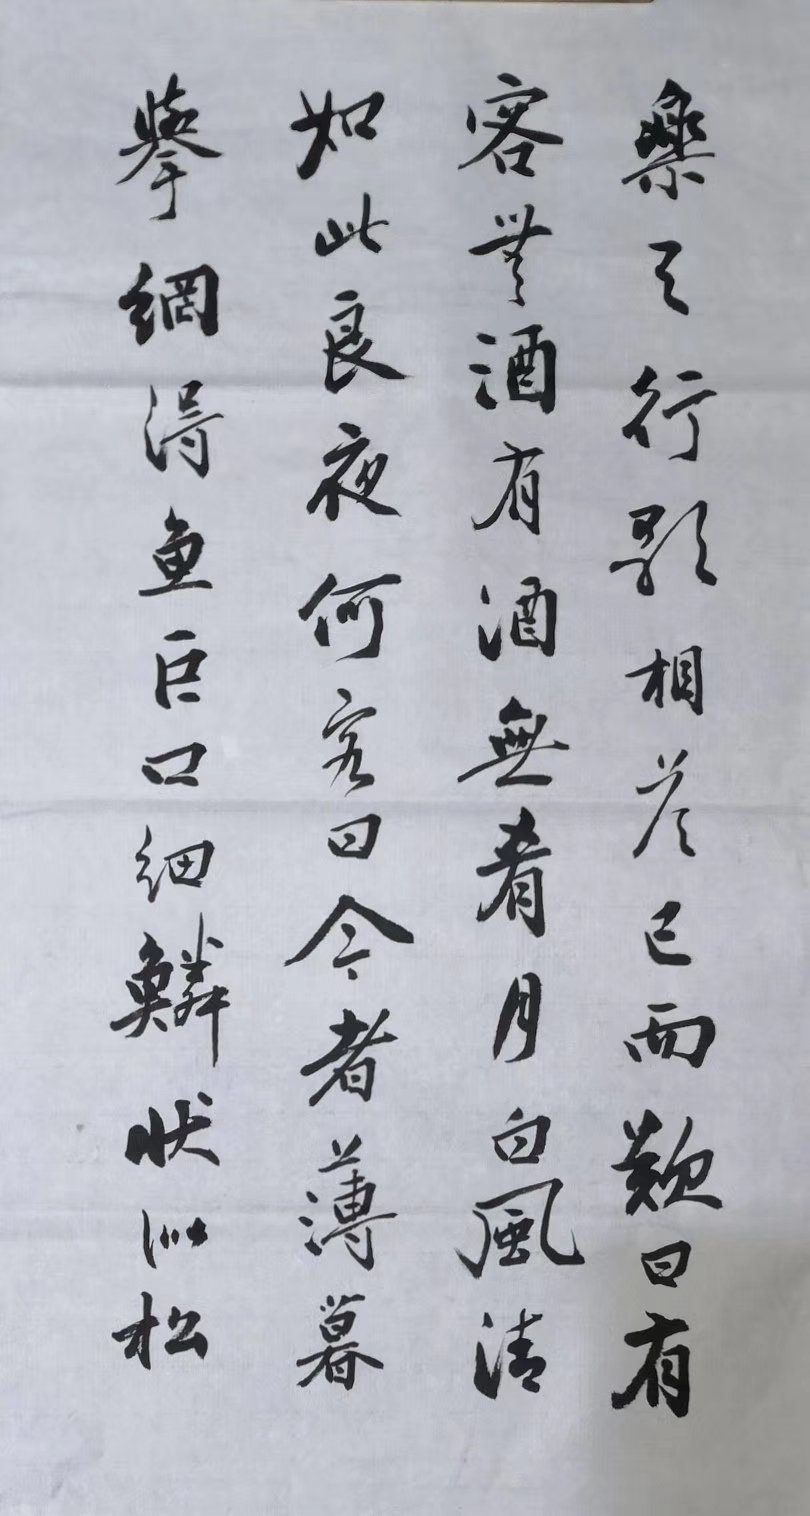 樂之行歌相答已而歎曰有
客無酒有酒無肴月白風清
如此良夜何客曰今者薄暮
舉網得魚巨口細鱗狀似松